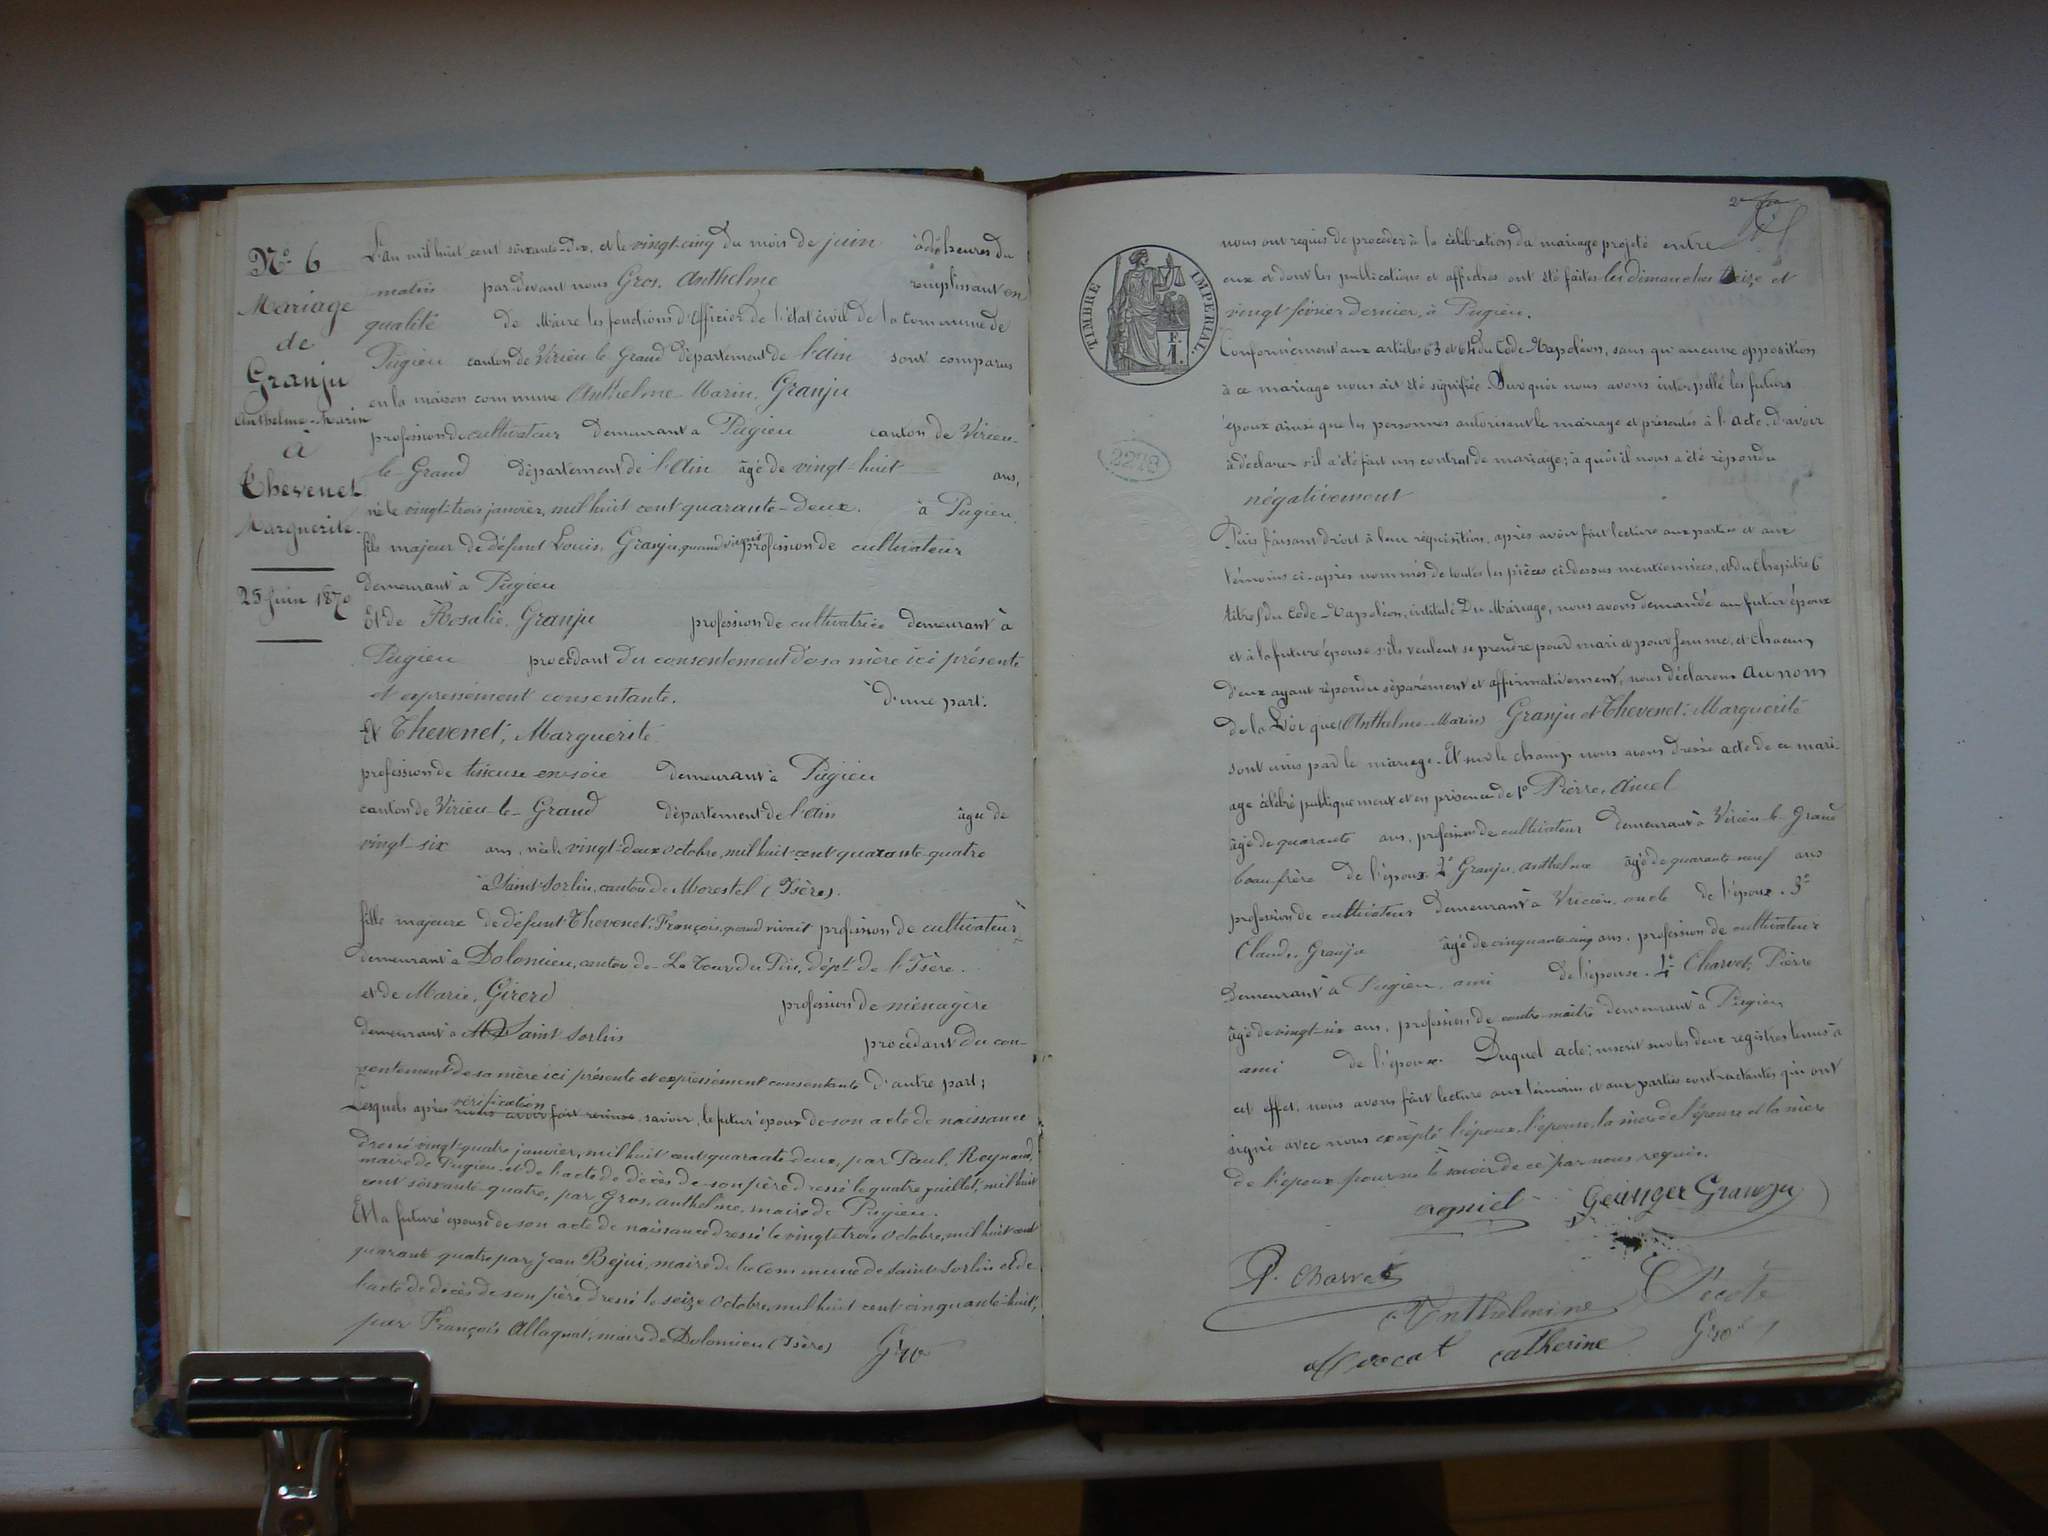 N° 6
Mariage
de
Granju
Anthelme-Marin
à
Thevenet
Marguerite.
25 Juin 1870
L'an mil huit cent soixante-dix, et le vingt-cinq du mois de juin à dix heures du
matin par-devant nous Gros, Anthelme remplissant en
qualité de Maire les fonctions d'Officier de l'état civil de la Commune de
Pugieu canton de Virieu-le-Grand département de l'Ain sont comparus
en la maison commune Anthelme-Marin, Granju
profession de cultivateur demeurant à Pugieu canton de Virieu-
le-Grand département de l'Ain âgé de vingt-huit ans,
né le vingt-trois janvier, mil huit cent quarante-deux. à Pugieu,
fils majeur de défunt Louis, Granju, quand vivait profession de cultivateur
demeurant à Pugieu
Et de Rosalie, Granju profession de cultivatrice demeurant à
Pugieu procédant du consentement de sa mère ici présente
et expressément consentante. d'une part.
Et Thevenet, Marguerite
profession de tisseuse en soie demeurant à Pugieu
canton de Virieu-le-Grand département de l'Ain âgée de
vingt-six ans, née le vingt-deux octobre, mil huit cent quarante-quatre
à Saint-Sorlin, canton de Morestel (Isère).
fille majeure de défunt Thevenet, François, quand vivait profession de cultivateur
demeurant à Dolomieu, canton de La Tour du Pin, dépt de l'Isère.
et de Marie, Girerd profession de ménagère
demeurant à Saint Sorlin procédant du con-
sentement de sa mère ici présente et expressément consentante d'autre part;
vérification
Lesquels après nous avoir fait remise, savoir, le futur époux de son acte de naissance
dressé vingt-quatre janvier, mil huit cent quarante-deux, par Paul, Reynaud,
maire de Pugieu, et de l'acte de décès de son père dressé le quatre juillet, mil huit
cent soixante-quatre, par Gros, Anthelme, maire de Pugieu.
Et la future épouse de son acte de naissance dressé le vingt-trois octobre, mil huit cent
quarante-quatre par Jean Béjui, maire de la Commune de Saint-Sorlin et de
l'acte de décès de son père dressé le seize octobre, mil huit cent cinquante-huit,
par François Allagnat, maire de Dolomieu (Isère) Gro
TIMBRE IMPÉRIAL.
F.
1.
2278
nous ont requis de procéder à la célébration du mariage projeté entre
eux et dont les publications et affiches ont été faites les dimanches treize et
vingt février dernier, à Pugieu.
Conformément aux articles 63 et 64 du Code-Napoléon, sans qu'aucune opposition
à ce mariage nous ait été signifiée. Sur quoi nous avons interpellé les futurs
époux ainsi que les personnes autorisant le mariage et présentes à l'acte, d'avoir
à déclarer s'il a été fait un contrat de mariage; à quoi il nous a été répondu
négativement
Puis faisant droit à leur réquisition, après avoir fait lecture aux parties et aux
témoins ci-après nommés de toutes les pièces ci-dessus mentionnées, et du Chapitre 6
titre 5 du Code-Napoléon, intitulé Du Mariage, nous avons demandé au futur époux
et à la future épouse s'ils veulent se prendre pour mari et pour femme, et chacun
d'eux ayant répondu séparément et affirmativement, nous déclarons au nom
de la Loi que Anthelme-Marin Granju et Thevenet, Marguerite
sont unis par le mariage. Et sur le champ nous avons dressé acte de ce mari-
age célébré publiquement et en présence de 1° Pierre,
âgé de quarante ans, profession de cultivateur demeurant à Virieu-le-Grand
beau-frère de l'époux. 2° Granju, Anthelme âgé de quarante-neuf ans
profession de cultivateur demeurant à Virieu, oncle de l'époux. 3°
Claude, Granju âgé de cinquante-cinq ans, profession de cultivateur
demeurant à Pugieu, ami de l'épouse. 4° Charvet, Pierre
âgé de vingt-six ans, profession de contre-maître demeurant à Pugieu,
ami de l'époux. Duquel acte; inscrit sur les deux registres tenus à
cet effet, nous avons fait lecture aux témoins et aux parties contractantes qui ont
signé avec nous excepté l'époux, l'épouse, la mère de l'épouse et la mère
de l'époux pour ne le savoir de ce par nous requis.
Granju
P. Charvet
Anthelmine Décote
Catherine Gro